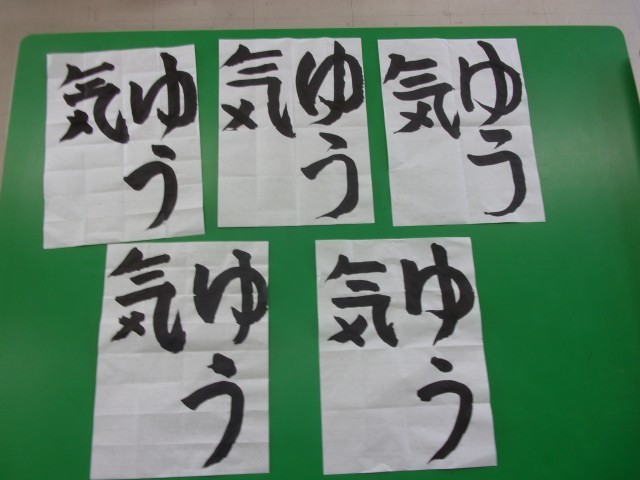 ゆう
気
ゆう
気
ゆう
気
ゆう
気
ゆう
気